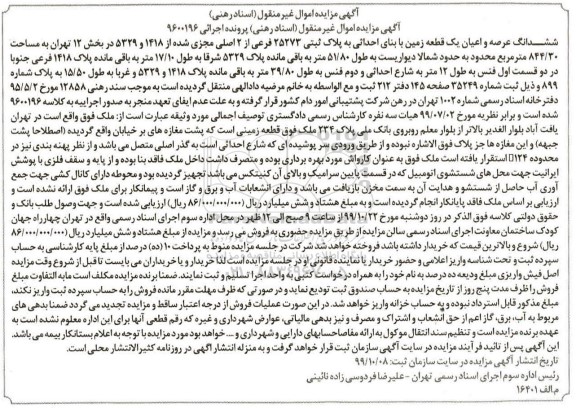 آگهی مزایده اموال غیر منقول (اسناد رهنی)
آگهی مزایده اموال غیر منقول (اسناد رهنی) پرونده اجرائی ۹۶۰۰۱۹۶
ششدانگ عرصه و اعیان یک قطعه زمین با بنای احداثی به پلاک ثبتی ۲۵۲۷۳ فرعی از ۲ اصلی مجزی شده از ۱۴۱۸ و ۵۳۲۹ در بخش ۱۲ تهران به مساحت
۸۴۴/۳۰ مترمربع محدود به حدود شمالا دیواریست به طول ۵۱/۸۰ متر به باقی مانده پلاک ۵۳۲۹ شرقا به طول ۱۷/۱۰ متر به باقی مانده پلاک ۱۴۱۸ فرعی جنوبا
در دو قسمت اول فنس به طول ۱۲ متر به شارع احداثی و دوم فنس به طول ۳۹/۸۰ متر به باقی مانده پلاک ۱۴۱۸ و ۵۳۲۹ و غربا به طول ۱۵/۵۰ به پلاک شماره
۸۹۹ و ذیل ثبت شماره ۳۵۲۴۹ صفحه ۱۴۵ دفتر ۲۱۲ ثبت و مع الواسطه به خانم مرضیه دادالهی منتقل گردیده است به موجب سند رهنی ۱۲۸۵۸ مورخ ۹۵/۵/۲
دفترخانه اسناد رسمی شماره ۱۰۰۲ تهران در رهن شرکت پشتیبانی امور دام کشور قرار گرفته و به علت عدم ایفای تعهد منجر به صدور اجراییه به کلاسه ۹۶۰۰۱۹۶
شده است و برابر نظریه مورخ ۹۹/۰۷/۰۲ هیات سه نفره کارشناس رسمی دادگستری توصیف اجمالی مورد وثیقه عبارت است از: ملک فوق واقع است در تهران
یافت آباد بلوار الغدیر بالاتر از بلوار معلم روبروی بانک ملی پلاک ۲۳۴ ملک فوق قطعه زمینی است که پشت مغازه های بر خیابان واقع گردیده (اصطلاحا پشت
جبهه) و این مغازه ها جز پلاک فوق الاشاره نبوده و از طریق ورودی سر پوشیده ای که شارع احداثی است به گذر اصلی متصل می باشد و از نظر پهنه بندی نیز در
محدوده ۱۲۴ استقرار یافته است ملک فوق به عنوان کارواش مورد بهره برداری بوده و متصرف داشت داخل ملک فاقد بنا بوده و از پایه و سقف فلزی با پوشش
ایرانیت جهت محل های شستشوی اتومبیل که در قسمت پایین سرامیک و بالای آن کنیتکس می باشد تجهیز گردیده بود و محوطه دارای کانال کشی جهت جمع
آوری آب حاصل از شستشو و هدایت آن به سمت مخزن بازیافت می باشد و دارای انشعابات آب و برق و گاز است و پیمانکار برای ملک فوق ارائه نشده است و
ارزیابی بر اساس ملک فاقد پایانکار انجام گردیده است و به مبلغ هشتاد و شش میلیارد ریال (۸۶/۰۰۰/۰۰۰/۰۰۰ ریال) ارزیابی شده است و جهت وصول طلب بانک و
حقوق دولتی کلاسه فوق الذکر در روز دوشنبه مورخ ۹۹/۱۰/۲۲ از ساعت ۹ صبح الی ۱۲ ظهر در محل اداره سوم اجرای اسناد رسمی واقع در تهران چهارراه جهان
کودک ساختمان معاونت اجرای اسناد رسمی سالن مزایده از طریق مزایده حضوری به فروش می رسد و مزایده از مبلغ هشتاد و شش میلیارد ریال (۸۶/۰۰۰/۰۰۰/۰۰۰
ریال) شروع و بالاترین قیمت که خریدار داشته باشد فروخته خواهد شد شرکت در جلسه مزایده منوط به پرداخت ۱۰ (ده) درصد از مبلغ پایه کارشناسی به حساب
سپرده ثبت و تحت شناسه واریز اعلامی و حضور خریدار یا نماینده قانونی او در جلسه مزایده است لذا خریدار و یا خریداران می بایست تا قبل از شروع وقت مزایده
اصل فیش واریزی مبلغ ودیعه ده درصد به نام خود را به همراه درخواست کتبی به واحد اجرا تسلیم و ثبت نمایند. ضمنا برنده مزایده مکلف است مابه التفاوت مبلغ
فروش را ظرف مدت پنج روز از تاریخ مزایده به حساب صندوق ثبت تودیع نماید و در صورتی که ظرف مهلت مقرر مانده فروش را به حساب سپرده ثبت واریز نکند،
مبلغ مذکور قابل استرداد نبوده و به حساب خزانه واریز خواهد شد. در این صورت عملیات فروش از درجه اعتبار ساقط و مزایده تجدید می گردد ضمنا بدهی های
مربوط به آب، برق، گاز اعم از حق انشعاب و اشتراک و مصرف و نیز بدهی مالیاتی، عوارض شهرداری و غیره که رقم قطعی آنها برای این اداره معلوم نشده است به
عهده برنده مزایده است و تنظیم سند انتقال موکول به ارائه مفاصاحسابهای دارایی و شهرداری و .... خواهد بود مورد مزایده با توجه به اعلام بستانکار بیمه می باشد.
این آگهی پس از تائید فرآیند مزایده در سایت آگهی سازمان ثبت قرار خواهد گرفت و به منزله انتشار آگهی در روزنامه کثیرالانتشار محلی است.
تاریخ انتشار آگهی مزایده در سایت سازمان ثبت: ۹۹/۱۰/۰۸
رئیس اداره سوم اجرای اسناد رسمی تهران - علیرضا فردوسی زاده نائینی
م.الف ۱۶۴۰۱